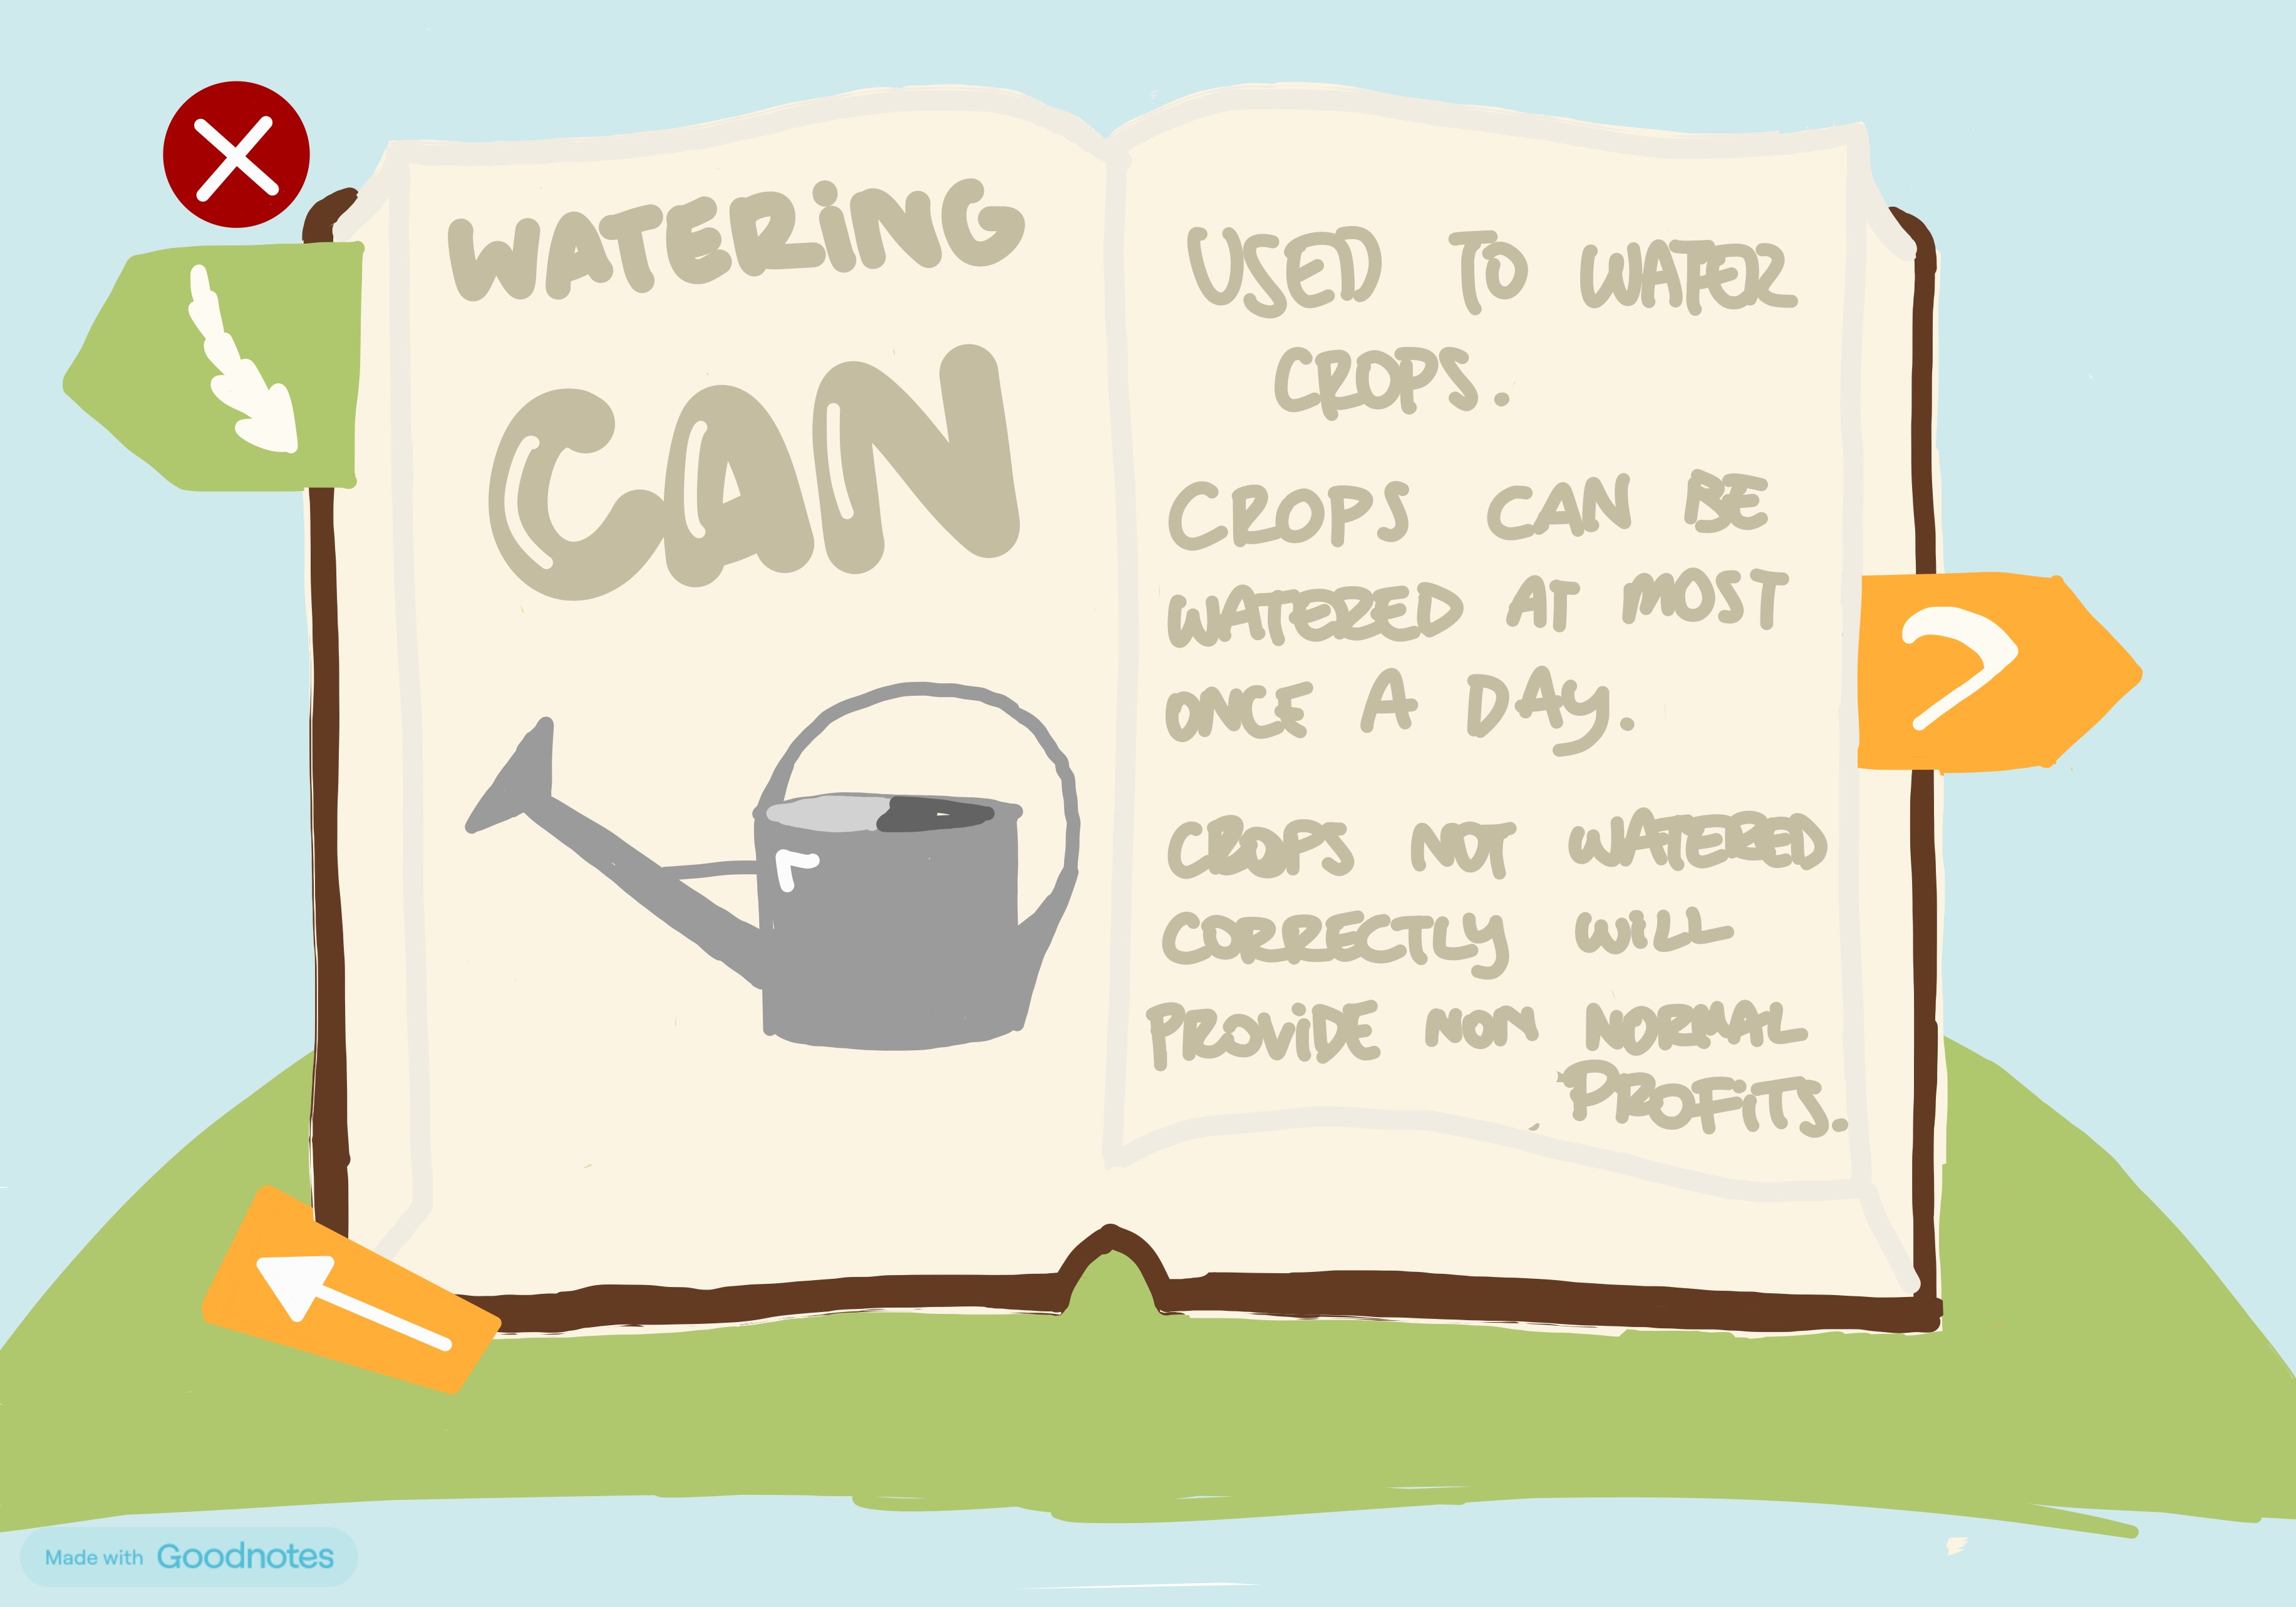 WATERiNG
CAN
USED TO WATER
CROPS.
CROPS CAN BE
WATERED AT MOST
ONCE A DAy.
CROPS NOT WATERED
CORRECTLy WiLL
PROViDE NON NORMAL
PROFiTS.
Made with Goodnotes